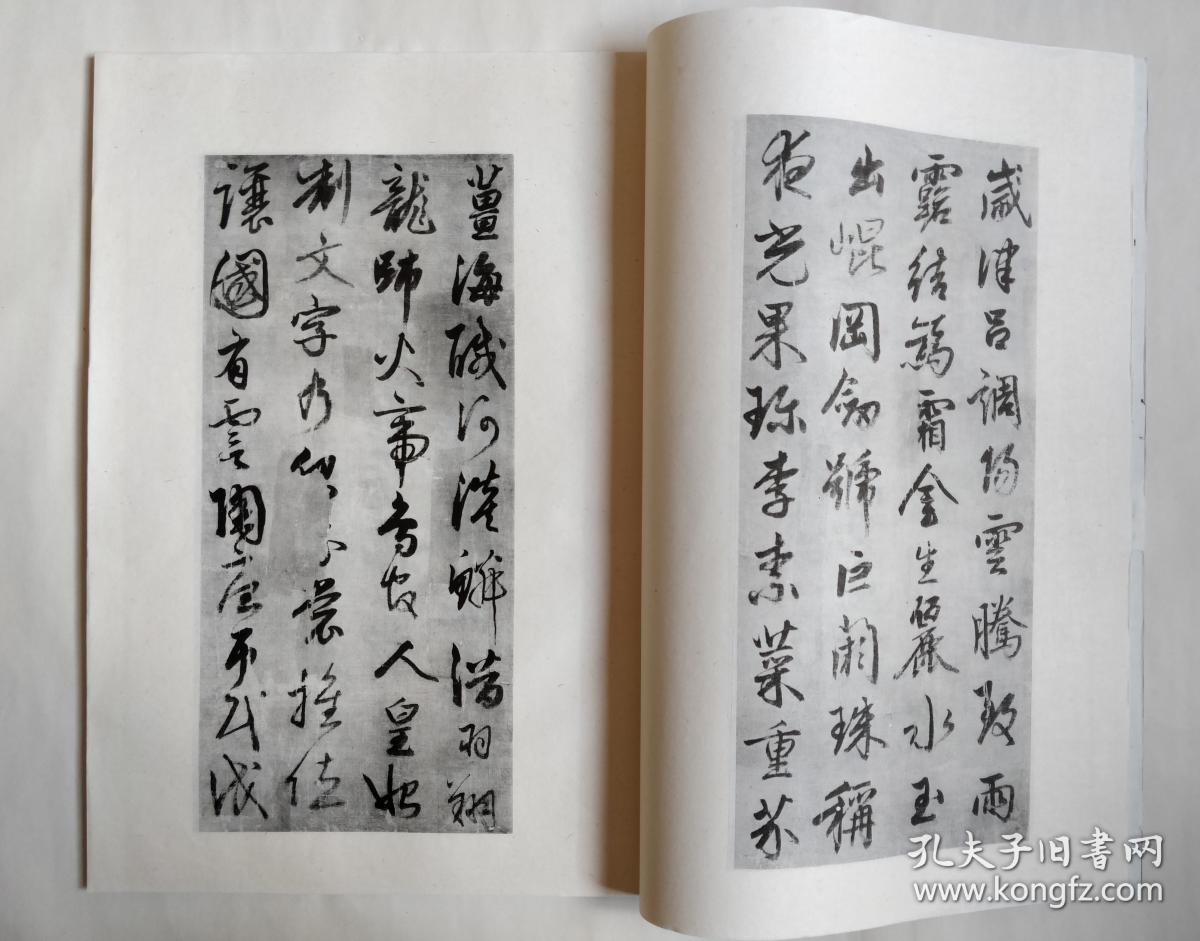 歲律呂調陽雲騰致雨
露結爲霜金生麗水玉
出崐岡劍號巨闕珠稱
夜光果珍李柰菜重芥
薑海醎河淡鱗潛羽翔
龍師火帝鳥官人皇始
制文字乃服衣裳推位
讓國有虞陶唐弔民伐
孔夫子旧书网
www.kongfz.com